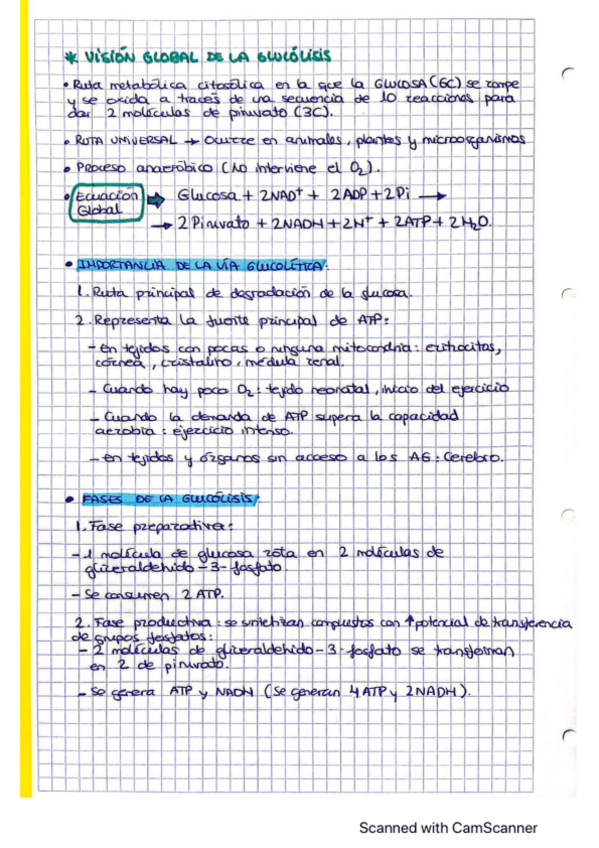 * VISIÓN GLOBAL DE LA GLUCÓLISIS
• Ruta metabólica citosólica en la que la GLUCOSA (6C) se rompe
y se oxida a través de una secuencia de 10 reacciones para
dar 2 moléculas de piruvato (3C).
• RUTA UNIVERSAL → Ocurre en animales, plantes y microorganismos
• PROCESO anaeróbico (No interviene el O₂).
• Ecuación Global → Glucosa + 2NAD⁺ + 2ADP + 2Pi →
→ 2 Piruvato + 2NADH + 2H⁺ + 2ATP + 2H₂O.
• IMPORTANCIA DE LA VÍA GLUCOLÍTICA:
1. Ruta principal de degradación de la glucosa.
2. Representa la fuente principal de ATP:
- En tejidos con pocas o ninguna mitocondria: eritrocitos,
córnea, cristalino, médula renal.
- Cuando hay poco O₂: tejido neonatal, inicio del ejercicio
- Cuando la demanda de ATP supera la capacidad
aerobia: ejercicio intenso.
- en tejidos y órganos sin acceso a los AG: Cerebro.
• FASES DE LA GLUCÓLISIS:
1. Fase preparativa:
- 1 molécula de glucosa rota en 2 moléculas de
gliceraldehido-3-fosfato.
- Se consumen 2 ATP.
2. Fase productiva: se sintetizan compuestos con ↑potencial de transferencia
de grupos fosfatos:
- 2 moléculas de gliceraldehido-3-fosfato se transforman
en 2 de piruvato.
- Se genera ATP y NADH (Se generan 4ATP y 2NADH).
Scanned with CamScanner